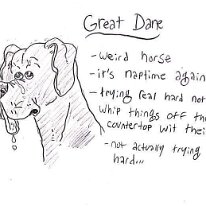 Great Dane
-weird horse
-it's naptime again
-trying real hard not
whip things off th
countertop wit thei
-not actually trying
hard...